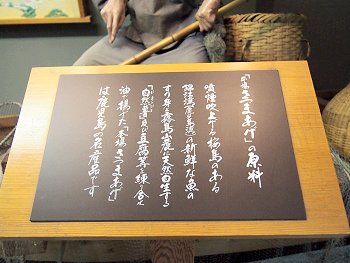 「本場さつまあげ」の原料
噴煙吹上げる桜島のある
錦江湾(鹿児島湾)の新鮮な魚の
すり身と霧島山麓に天然自生する
「自然薯」及び豆腐等を練り合せ
油で揚げた「本場さつまあげ」
は鹿児島の名産品です